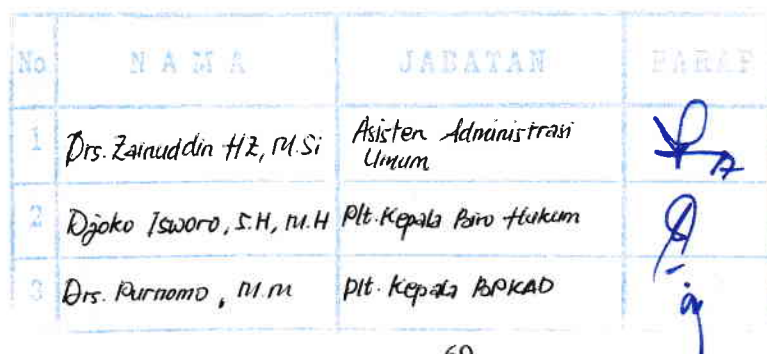 No NAMA JABATAN PARAF
1 Drs. Zainuddin HZ, M.Si Asisten Administrasi
Umum
2 Djoko Isworo, S.H, M.H Plt. Kepala Biro Hukum
3 Drs. Purnomo, M.M Plt. Kepala BPKAD